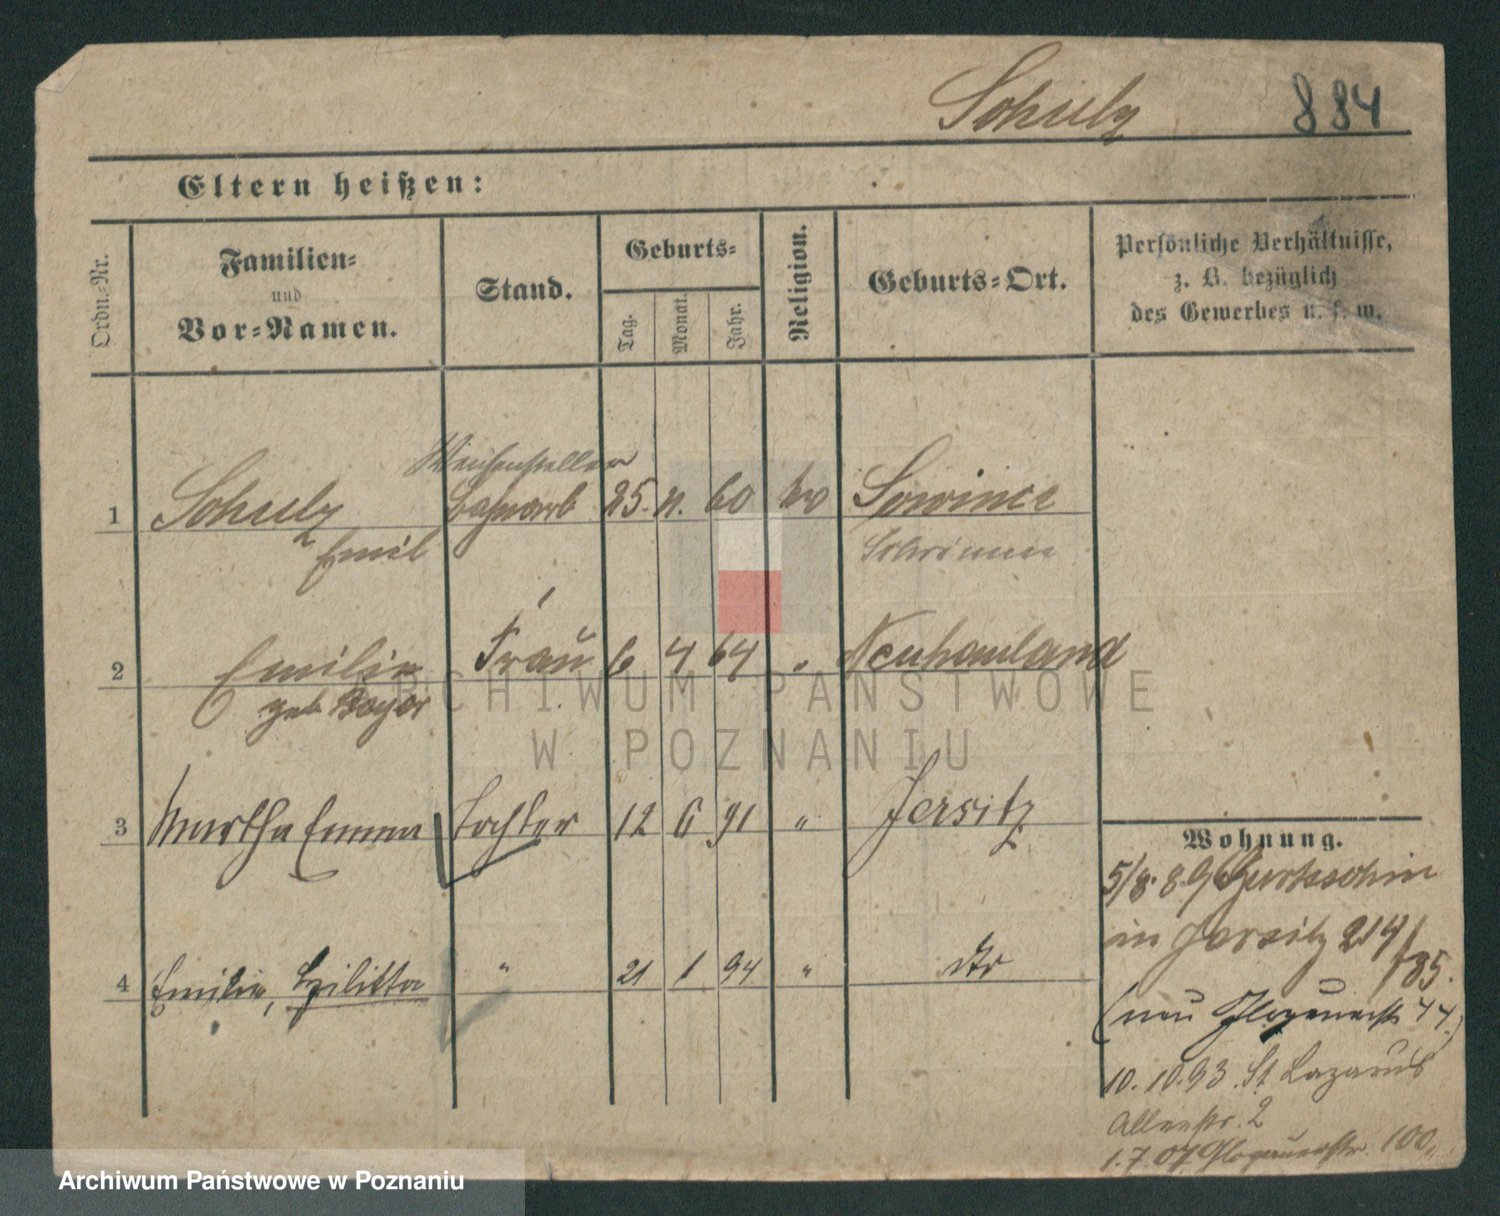 Schulz 884
Eltern heißen:
Ordn.-Nr.
Familien-
und
Vor-Namen.
Stand.
Geburts-
Tag.
Monat.
Jahr.
Religion.
Geburts-Ort.
Persönliche Verhältnisse,
z. B. bezüglich
des Gewerbes u. s. w.
Weichensteller
1 Schulz Bahnarb 25. 11. 60 ev Sowince
Emil Schrimm
2 Emilie Frau 6 4 64 " Neuhauland
geb.
3 Martha Emma Tochter 12 6 91 " Jersitz
4 Emilie, " 21 1 94 " dto
Wohnung.
5/8. 89
in Jersitz 214/
85.
(neu Glogauerstr 44.)
10. 10. 93. St Lazarus
Allenstr. 2
1. 7. 07 Glogauerstr. 100.
ARCHIWUM PAŃSTWOWE
W POZNANIU
Archiwum Państwowe w Poznaniu